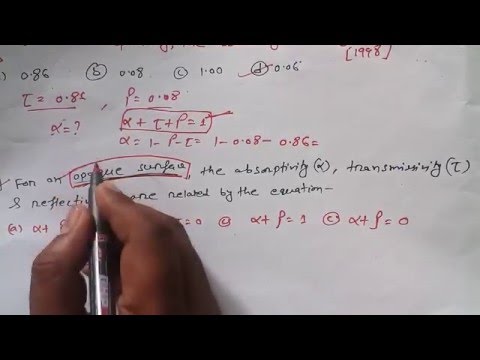 [1998]
0.86 (b) 0.08 (c) 1.00 (d) 0.06
τ = 0.86, ρ = 0.08
α = ? α + τ + ρ = 1
α = 1 - ρ - τ = 1 - 0.08 - 0.86 =
For an opaque surface, the absorptivity (α), transmissivity (τ)
& are related by the equation-
(a) α + = 0 (c) α + ρ = 1 (c) α + ρ = 0